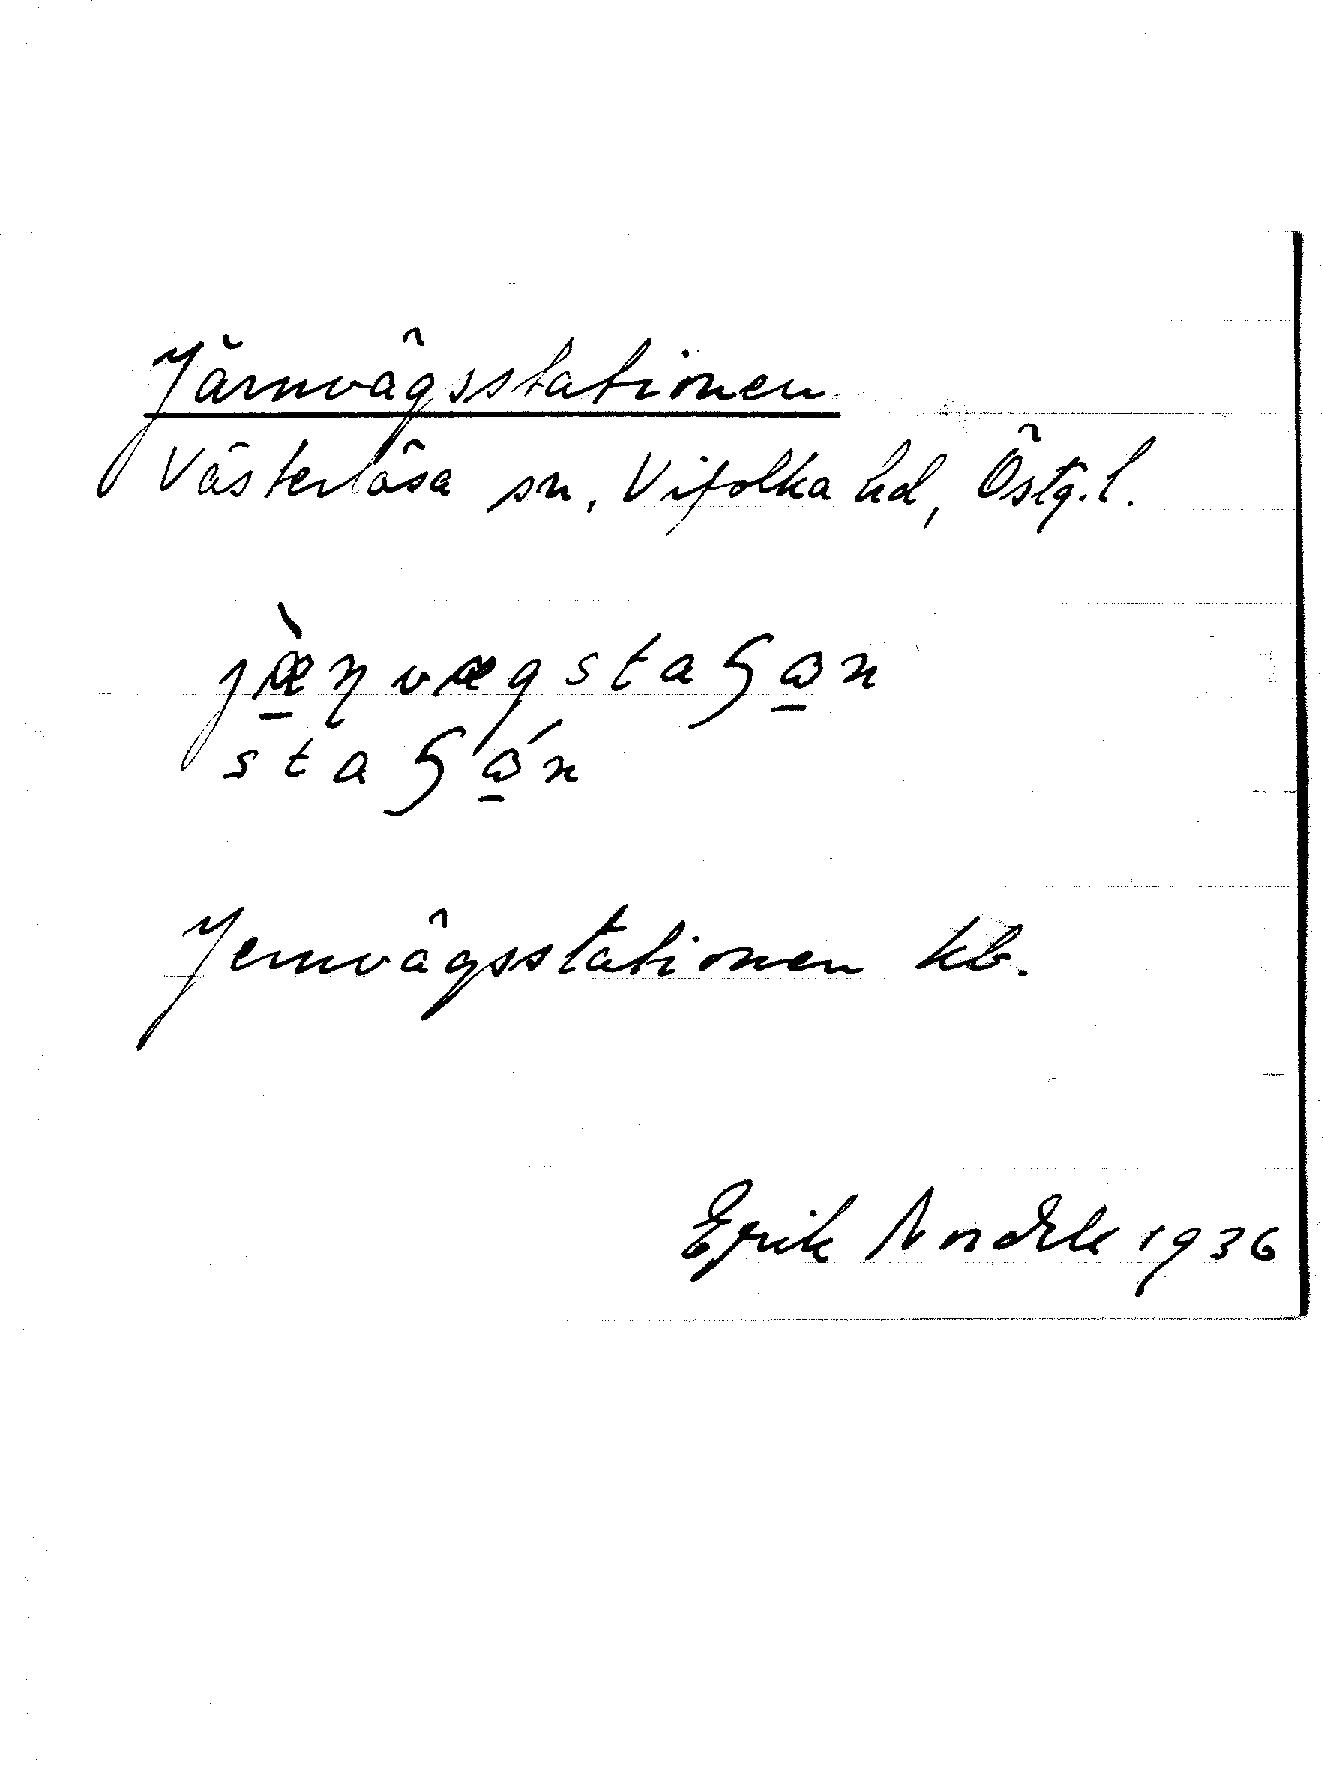 Järnvägsstationen
Västerlösa sn, Vifolka hd, Östg.l.
jæ̠̀ɳvægstaɧɷ̠n
staɧɷ̠́n
Jernvägsstationen kb.
Erik 1936